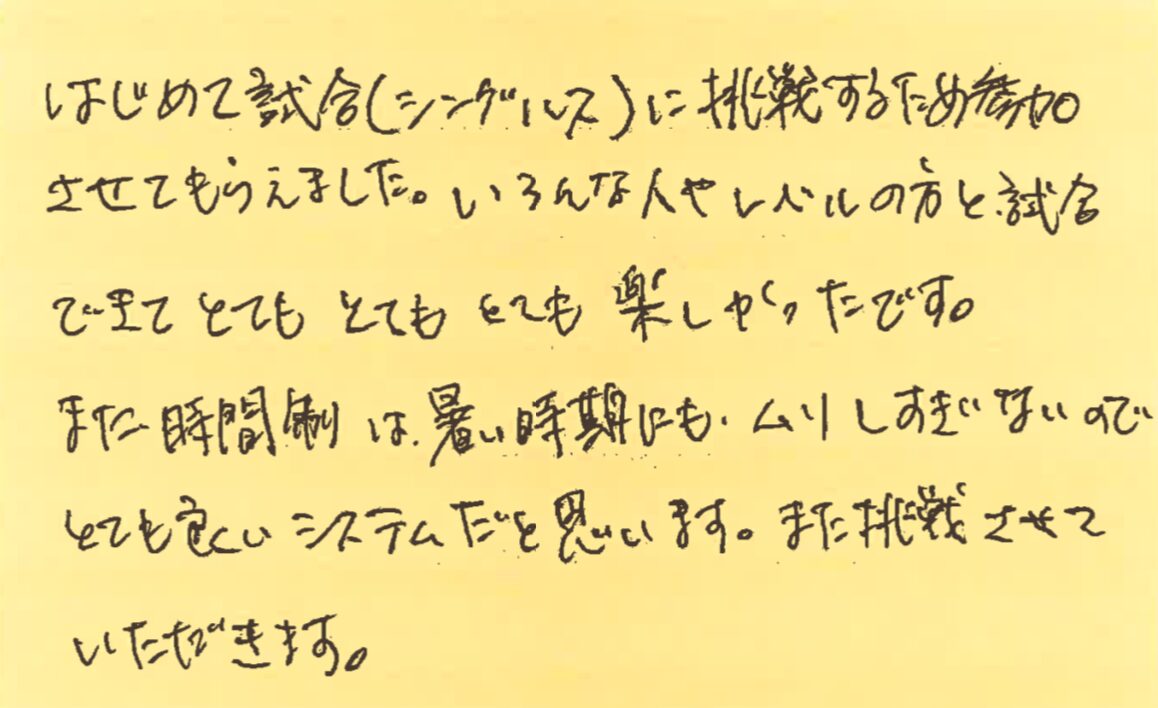 はじめて試合(シングルス)に挑戦するため参加
させてもらえました。いろんな人やレベルの方と試合
できてとてもとてもとても楽しかったです。
また時間制は、暑い時期にも、ムリしすぎないので
とても良いシステムだと思います。また挑戦させて
いただきます。